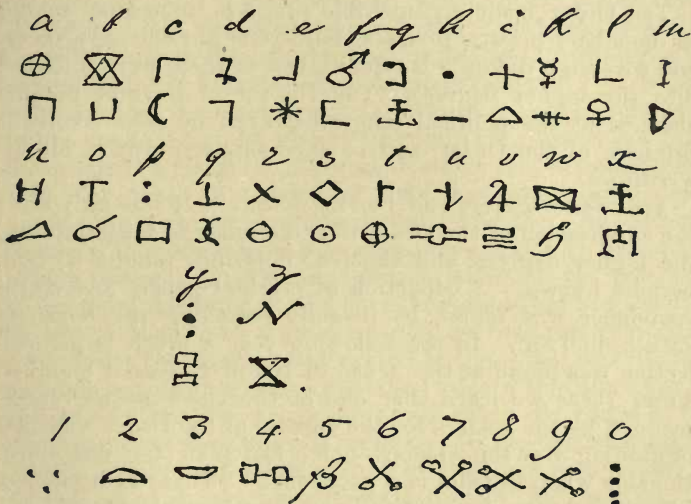 a b c d e f g h i k l m
n o p q r s t u v w x
y z
1 2 3 4 5 6 7 8 9 0